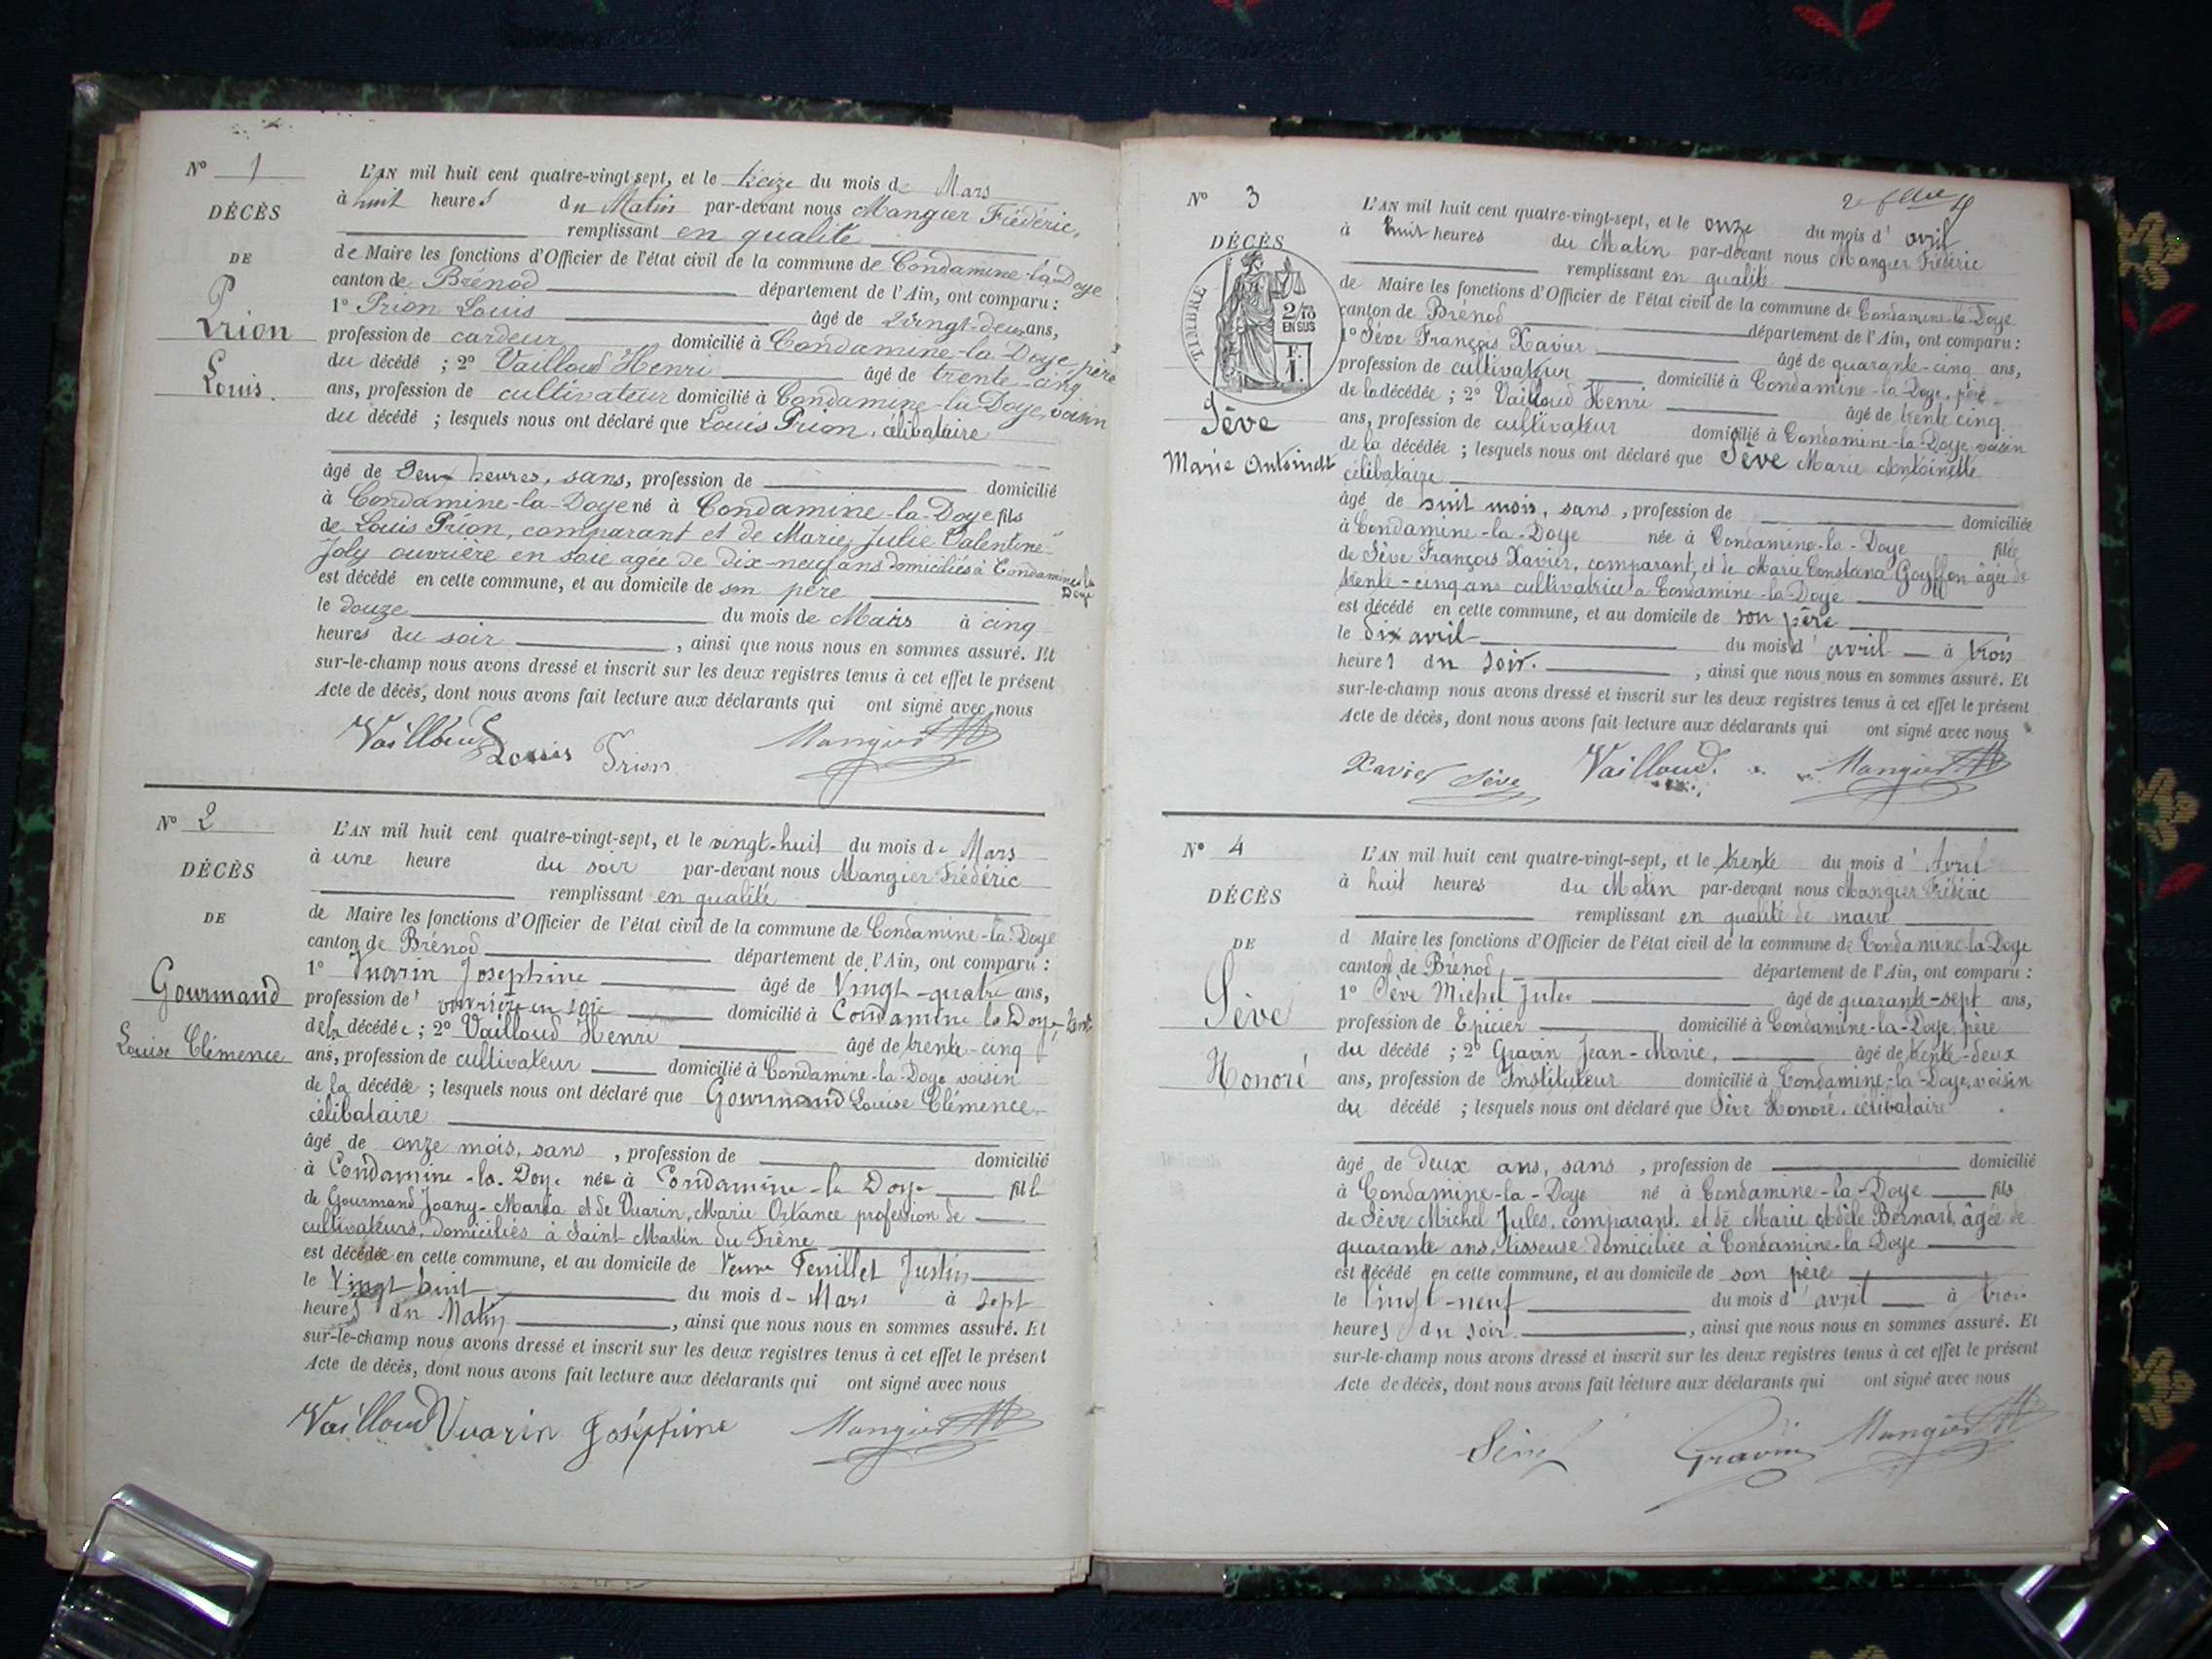 N° 1
DÉCÈS
DE
Prion
Louis.
L'AN mil huit cent quatre-vingt sept, et le treize du mois de Mars
à huit heures du Matin par-devant nous Mangier Frédéric,
remplissant en qualité
de Maire les fonctions d'Officier de l'état civil de la commune de Condamine-la-Doye
canton de Brénod département de l'Ain, ont comparu :
1° Prion Louis âgé de vingt-deux ans,
profession de cardeur domicilié à Condamine-la-Doye, père
du décédé ; 2° Vailloud Henri âgé de trente-cinq
ans, profession de cultivateur domicilié à Condamine-la-Doye, voisin
du décédé ; lesquels nous ont déclaré que Louis Prion, célibataire
âgé de Deux heures, sans, profession de domicilié
à Condamine-la-Doye né à Condamine-la-Doye fils
de Louis Prion, comparant et de Marie Julie Valentine
Joly ouvrière en soie agée de dix-neuf ans domiciliés à Condamine la Doye
est décédé en cette commune, et au domicile de son père
le douze du mois de Mars à cinq
heures du soir , ainsi que nous nous en sommes assuré. Et
sur-le-champ nous avons dressé et inscrit sur les deux registres tenus à cet effet le présent
Acte de décès, dont nous avons fait lecture aux déclarants qui ont signé avec nous
Vailloud Louis Prion Mangier
N° 2
DÉCÈS
DE
Gourmand
Louise Clémence
L'AN mil huit cent quatre-vingt-sept, et le vingt-huit du mois de Mars
à une heure du soir par-devant nous Mangier Frédéric
remplissant en qualité
de Maire les fonctions d'Officier de l'état civil de la commune de Condamine-la-Doye
canton de Brénod département de l'Ain, ont comparu :
1° Vuarin Joséphine âgé de Vingt-quatre ans,
profession de ouvrière en soie domicilié à Condamine la Doye, tante
de la décédée ; 2° Vailloud Henri âgé de trente-cinq
ans, profession de cultivateur domicilié à Condamine-la-Doye voisin
de la décédée ; lesquels nous ont déclaré que Gourmand Louise Clémence
célibataire
âgé de onze mois, sans , profession de domicilié
à Condamine-la-Doye née à Condamine-la Doye fille
de Gourmand Joany-Maria et de Vuarin, Marie profession de
cultivateurs, domiciliés à Saint-Martin du Frêne
est décédée en cette commune, et au domicile de Veuve Feuillet Justin
le Vingt huit du mois de Mars à Sept
heures du Matin , ainsi que nous nous en sommes assuré. Et
sur-le-champ nous avons dressé et inscrit sur les deux registres tenus à cet effet le présent
Acte de décès, dont nous avons fait lecture aux déclarants qui ont signé avec nous
Vailloud Vuarin Joséphine Mangier
N° 3
DÉCÈS
TIMBRE
2/10
EN SUS
F.
1.
Sève
Marie Antoinette
L'AN mil huit cent quatre-vingt-sept, et le onze du mois d'avril
à huit heures du Matin par-devant nous Mangier Frédéric
remplissant en qualité
de Maire les fonctions d'Officier de l'état civil de la commune de Condamine-la-Doye
canton de Brénod département de l'Ain, ont comparu :
1° Sève François Xavier âgé de quarante-cinq ans,
profession de cultivateur domicilié à Condamine-la-Doye, père
de la décédée ; 2° Vailloud Henri âgé de trente cinq
ans, profession de cultivateur domicilié à Condamine-la-Doye voisin
de la décédée ; lesquels nous ont déclaré que Sève Marie Antoinette
célibataire
âgé de huit mois, sans , profession de domiciliée
à Condamine-la-Doye née à Condamine-la-Doye fille
de Sève François Xavier, comparant, et de Marie Constance Goyffon âgée de
trente-cinq ans cultivatrice à Condamine-la-Doye
est décédé en cette commune, et au domicile de son père
le dix avril du mois d'avril à trois
heures du soir. , ainsi que nous nous en sommes assuré. Et
sur-le-champ nous avons dressé et inscrit sur les deux registres tenus à cet effet le présent
Acte de décès, dont nous avons fait lecture aux déclarants qui ont signé avec nous
Xavier Sève Vailloud. Mangier
N° 4
DÉCÈS
DE
Sève
Honoré
L'AN mil huit cent quatre-vingt-sept, et le trente du mois d'Avril
à huit heures du Matin par-devant nous Mangier Frédéric
remplissant en qualité de maire
d Maire les fonctions d'Officier de l'état civil de la commune de Condamine-la Doye
canton de Brénod département de l'Ain, ont comparu :
1° Sève Michel Jules âgé de quarante-sept ans,
profession de Epicier domicilié à Condamine-la-Doye, père
du décédé ; 2° Gravin Jean-Marie, âgé de trente-deux
ans, profession de Instituteur domicilié à Condamine-la-Doye, voisin
du décédé ; lesquels nous ont déclaré que Sève Honoré, célibataire
âgé de deux ans, sans , profession de domicilié
à Condamine-la-Doye né à Condamine-la-Doye fils
de Sève Michel Jules, comparant, et de Marie Adèle Bernard, âgée de
quarante ans, tisseuse domiciliée à Condamine-la Doye
est décédé en cette commune, et au domicile de son père
le Vingt-neuf du mois d'avril à trois
heures du soir. , ainsi que nous nous en sommes assuré. Et
sur-le-champ nous avons dressé et inscrit sur les deux registres tenus à cet effet le présent
Acte de décès, dont nous avons fait lecture aux déclarants qui ont signé avec nous
Sève Gravin Mangier